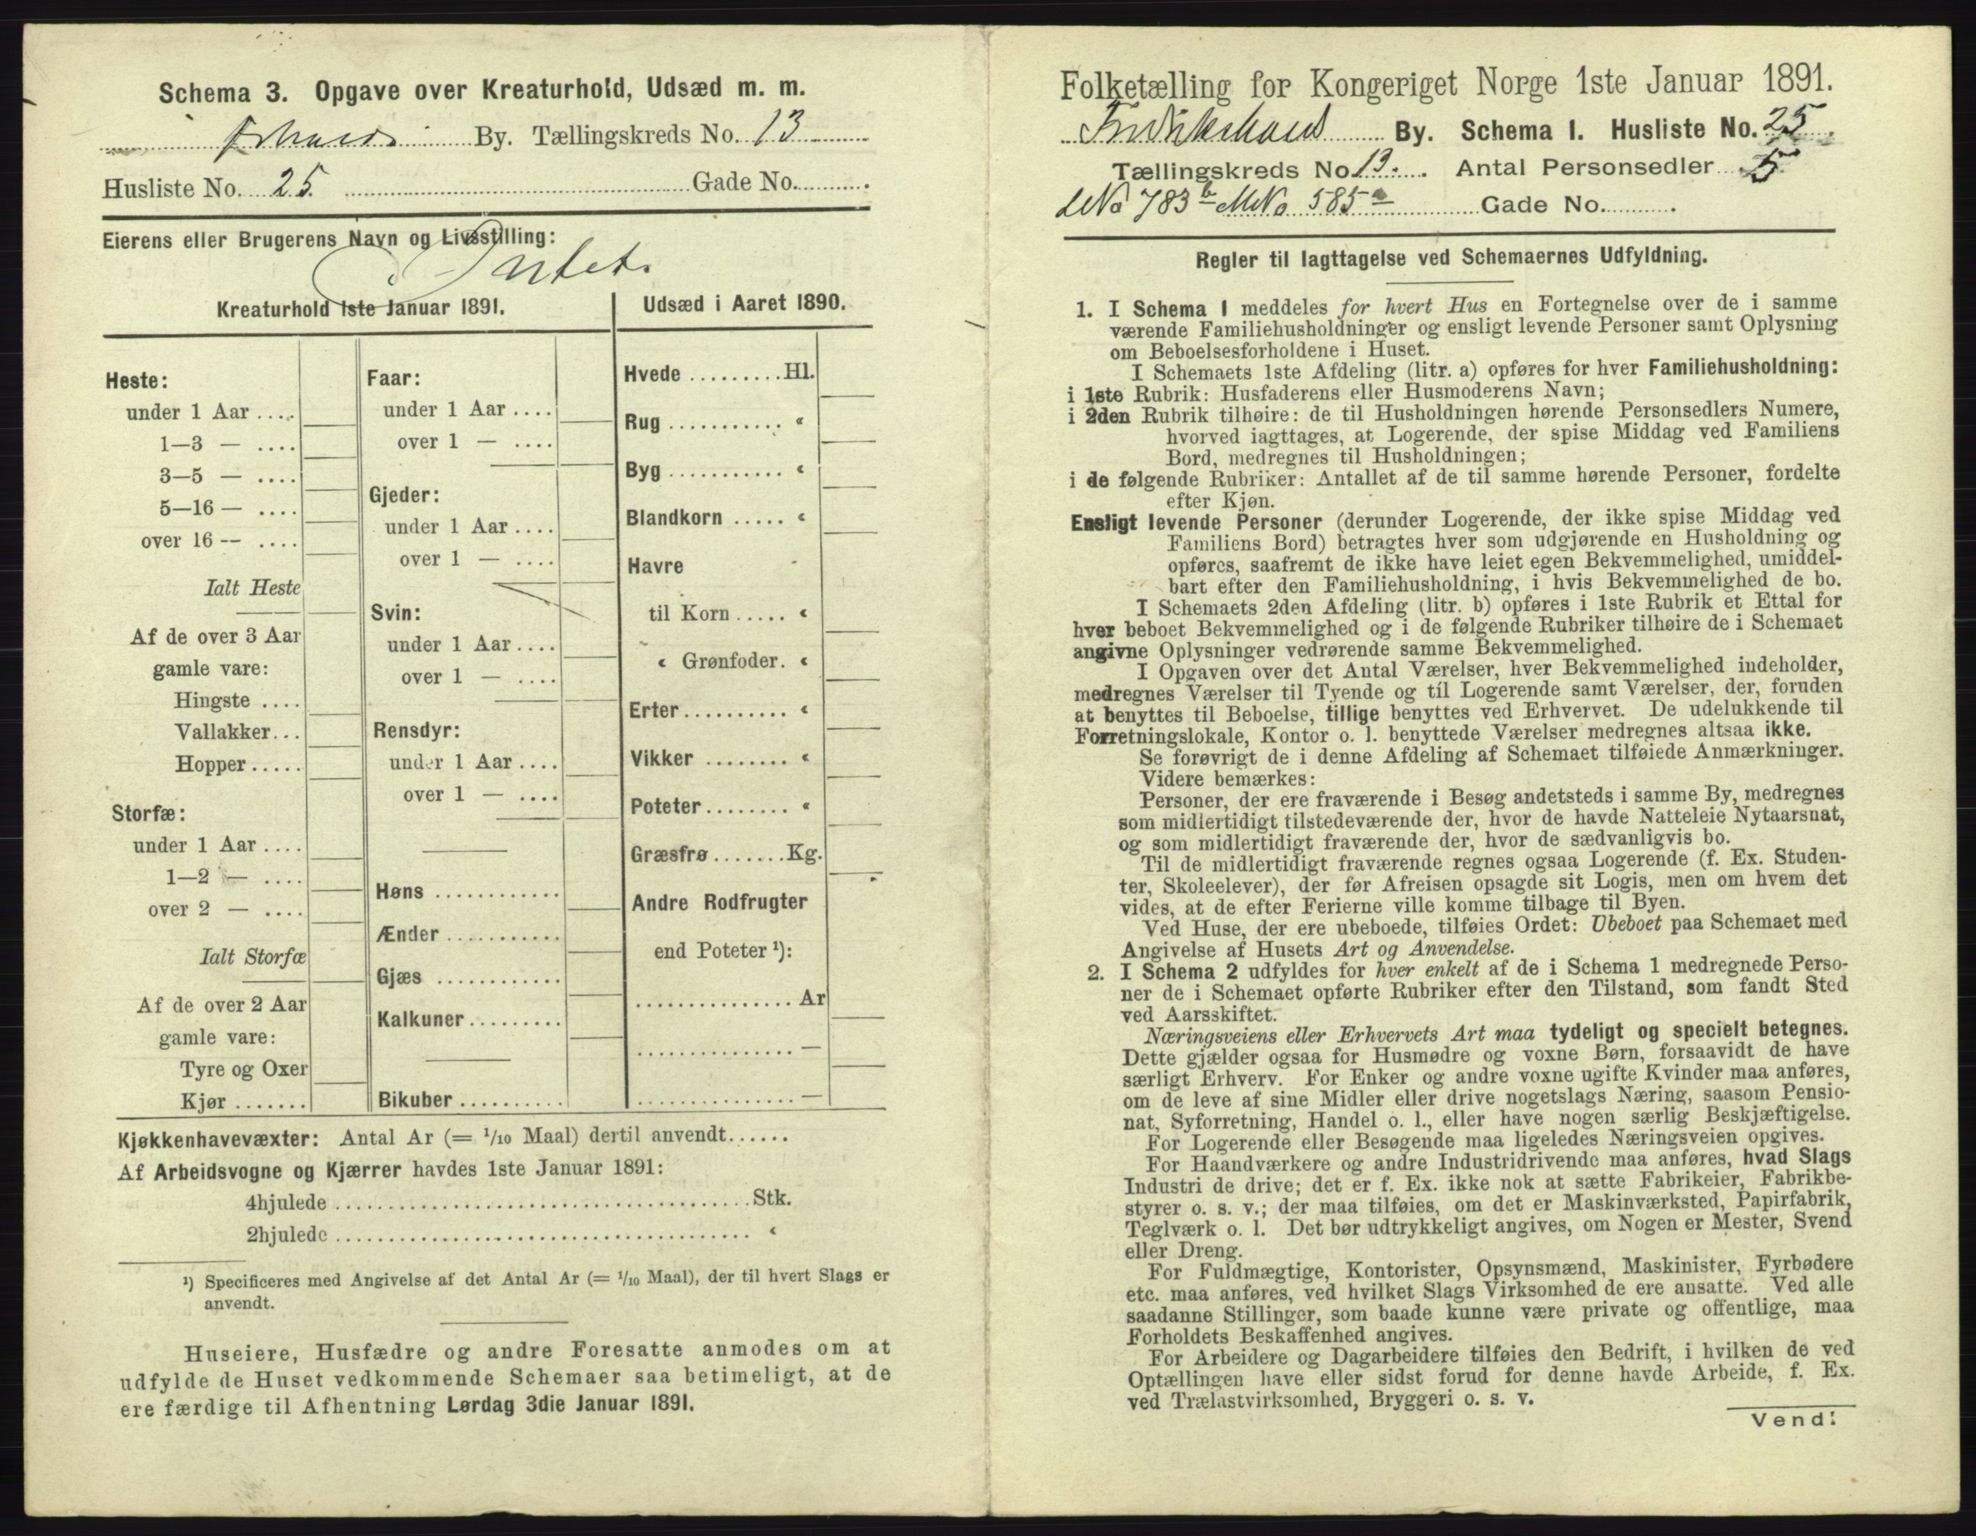 Schema 3. Opgave over Kreaturhold, Udsæd m. m.
By. Tællingskreds No. 13
Husliste No. 25 Gade No.
Eierens eller Brugerens Navn og Livsstilling:
Intet.
Kreaturhold 1ste Januar 1891.
Heste:
under 1 Aar ....
1—3 — ....
3—5 — ....
5—16 — ....
over 16 — ....
Ialt Heste
Af de over 3 Aar
gamle vare:
Hingste ....
Vallakker...
Hopper.....
Storfæ:
under 1 Aar ....
1—2 — ....
over 2 — ....
Ialt Storfæ
Af de over 2 Aar
gamle vare:
Tyre og Oxer
Kjør.......
Faar:
under 1 Aar ....
over 1 — ....
Gjeder:
under 1 Aar ....
over 1 — ....
Svin:
under 1 Aar ....
over 1 — ....
Rensdyr:
under 1 Aar ....
over 1 — ....
Høns ............
Ænder ...........
Gjæs ............
Kalkuner.........
Bikuber ..........
Udsæd i Aaret 1890.
Hvede .........Hl.
Rug ........... «
Byg ........... «
Blandkorn ..... «
Havre
til Korn ..... «
« Grønfoder. «
Erter.......... «
Vikker ........ «
Poteter........ «
Græsfrø.......Kg.
Andre Rodfrugter
end Poteter ¹):
............... Ar
............... —
............... —
Kjøkkenhavevæxter: Antal Ar (= 1/10 Maal) dertil anvendt......
Af Arbeidsvogne og Kjærrer havdes 1ste Januar 1891:
4hjulede ......................................Stk.
2hjulede ...................................... «
¹) Specificeres med Angivelse af det Antal Ar (= 1/10 Maal), der til hvert Slags er
anvendt.
Huseiere, Husfædre og andre Foresatte anmodes om at
udfylde de Huset vedkommende Schemaer saa betimeligt, at de
ere færdige til Afhentning Lørdag 3die Januar 1891.
Folketælling for Kongeriget Norge 1ste Januar 1891.
Fredrikshald By. Schema I. Husliste No. 25
Tællingskreds No 13. Antal Personsedler 5
No 783 b MNo 585 a Gade No.
Regler til Iagttagelse ved Schemaernes Udfyldning.
1. I Schema 1 meddeles for hvert Hus en Fortegnelse over de i samme
værende Familiehusholdninger og ensligt levende Personer samt Oplysning
om Beboelsesforholdene i Huset.
I Schemaets 1ste Afdeling (litr. a) opføres for hver Familiehusholdning:
i 1ste Rubrik: Husfaderens eller Husmoderens Navn;
i 2den Rubrik tilhøire: de til Husholdningen hørende Personsedlers Numere,
hvorved iagttages, at Logerende, der spise Middag ved Familiens
Bord, medregnes til Husholdningen;
i de følgende Rubriker: Antallet af de til samme hørende Personer, fordelte
efter Kjøn.
Ensligt levende Personer (derunder Logerende, der ikke spise Middag ved
Familiens Bord) betragtes hver som udgjørende en Husholdning og
opføres, saafremt de ikke have leiet egen Bekvemmelighed, umiddel-
bart efter den Familiehusholdning, i hvis Bekvemmelighed de bo.
I Schemaets 2den Afdeling (litr. b) opføres i 1ste Rubrik et Ettal for
hver beboet Bekvemmelighed og i de følgende Rubriker tilhøire de i Schemaet
angivne Oplysninger vedrørende samme Bekvemmelighed.
I Opgaven over det Antal Værelser, hver Bekvemmelighed indeholder,
medregnes Værelser til Tyende og til Logerende samt Værelser, der, foruden
at benyttes til Beboelse, tillige benyttes ved Erhvervet. De udelukkende til
Forretningslokale, Kontor o. l. benyttede Værelser medregnes altsaa ikke.
Se forøvrigt de i denne Afdeling af Schemaet tilføiede Anmærkninger.
Videre bemærkes:
Personer, der ere fraværende i Besøg andetsteds i samme By, medregnes
som midlertidigt tilstedeværende der, hvor de havde Natteleie Nytaarsnat,
og som midlertidigt fraværende der, hvor de sædvanligvis bo.
Til de midlertidigt fraværende regnes ogsaa Logerende (f. Ex. Studen-
ter, Skoleelever), der før Afreisen opsagde sit Logis, men om hvem det
vides, at de efter Ferierne ville komme tilbage til Byen.
Ved Huse, der ere ubeboede, tilføies Ordet: Ubeboet paa Schemaet med
Angivelse af Husets Art og Anvendelse.
2. I Schema 2 udfyldes for hver enkelt af de i Schema 1 medregnede Perso-
ner de i Schemaet opførte Rubriker efter den Tilstand, som fandt Sted
ved Aarsskiftet.
Næringsveiens eller Erhvervets Art maa tydeligt og specielt betegnes.
Dette gjælder ogsaa for Husmødre og voxne Børn, forsaavidt de have
særligt Erhverv. For Enker og andre voxne ugifte Kvinder maa anføres,
om de leve af sine Midler eller drive nogetslags Næring, saasom Pensio-
nat, Syforretning, Handel o. l., eller have nogen særlig Beskjæftigelse.
For Logerende eller Besøgende maa ligeledes Næringsveien opgives.
For Haandværkere og andre Industridrivende maa anføres, hvad Slags
Industri de drive; det er f. Ex. ikke nok at sætte Fabrikeier, Fabrikbe-
styrer o. s. v.; der maa tilføies, om det er Maskinværksted, Papirfabrik,
Teglværk o. l. Det bør udtrykkeligt angives, om Nogen er Mester, Svend
eller Dreng.
For Fuldmægtige, Kontorister, Opsynsmænd, Maskinister, Fyrbødere
etc. maa anføres, ved hvilket Slags Virksomhed de ere ansatte. Ved alle
saadanne Stillinger, som baade kunne være private og offentlige, maa
Forholdets Beskaffenhed angives.
For Arbeidere og Dagarbeidere tilføies den Bedrift, i hvilken de ved
Optællingen have eller sidst forud for denne havde Arbeide, f. Ex.
ved Trælastvirksomhed, Bryggeri o. s. v.
Vend!